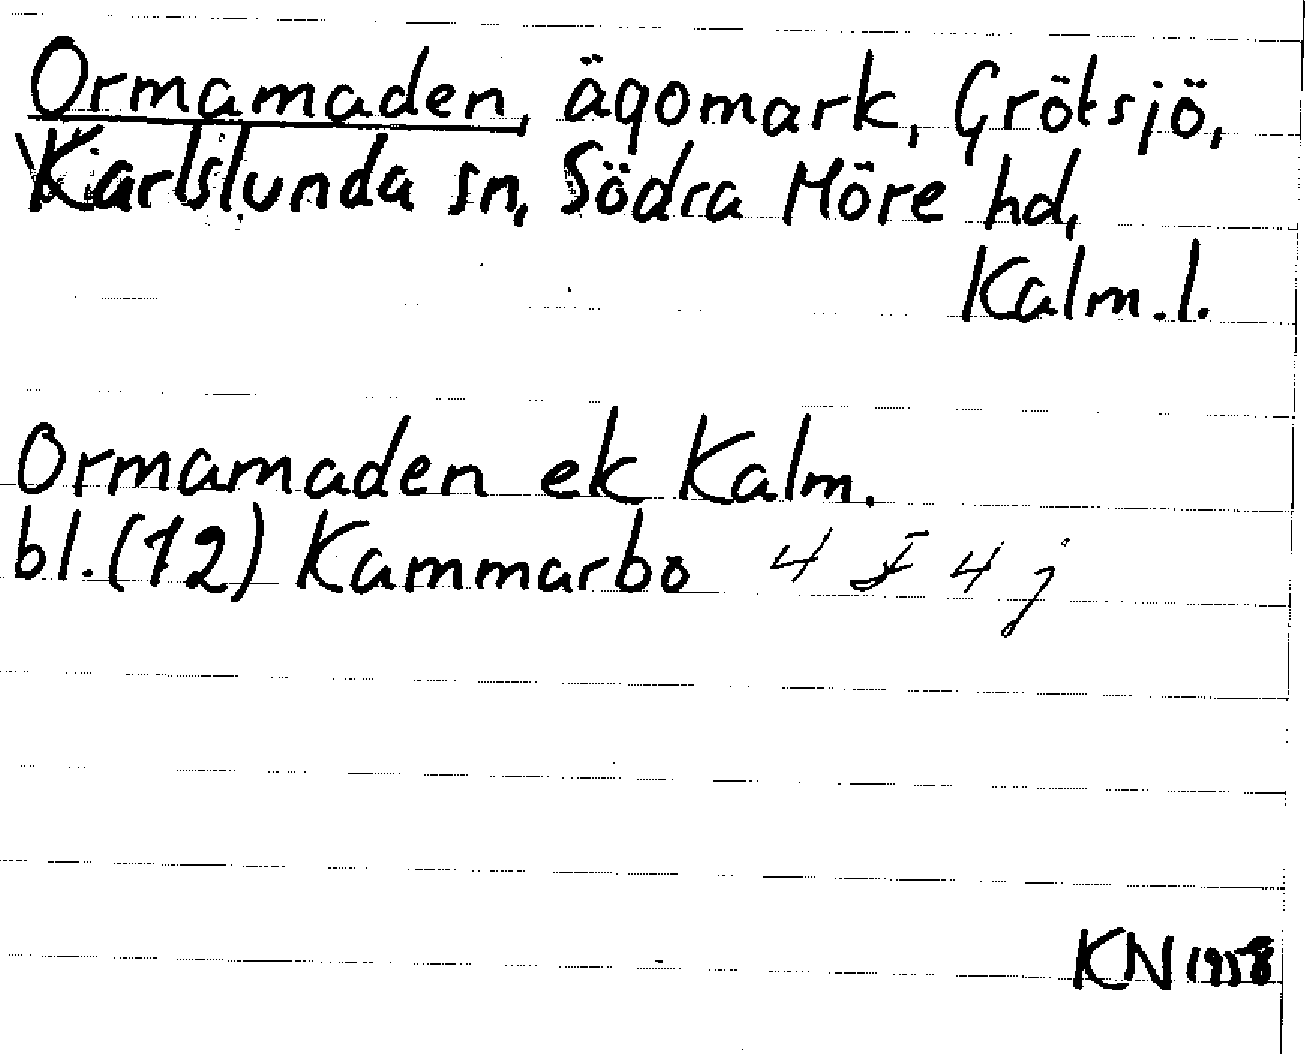 Ormamaden, ägomark, Grötsjö,
Karlslunda sn, Södra Möre hd,
Kalm.l.
Ormamaden ek Kalm.
bl.(12) Kammarbo 4 F 4 j
KN 1958